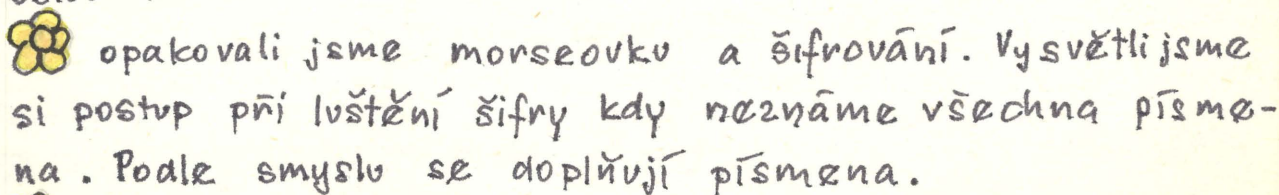 opakovali jsme morseovku a šifrování. Vysvětli jsme
si postup při luštění šifry kdy neznáme všechna písme-
na. Podle smyslu se doplňují písmena.